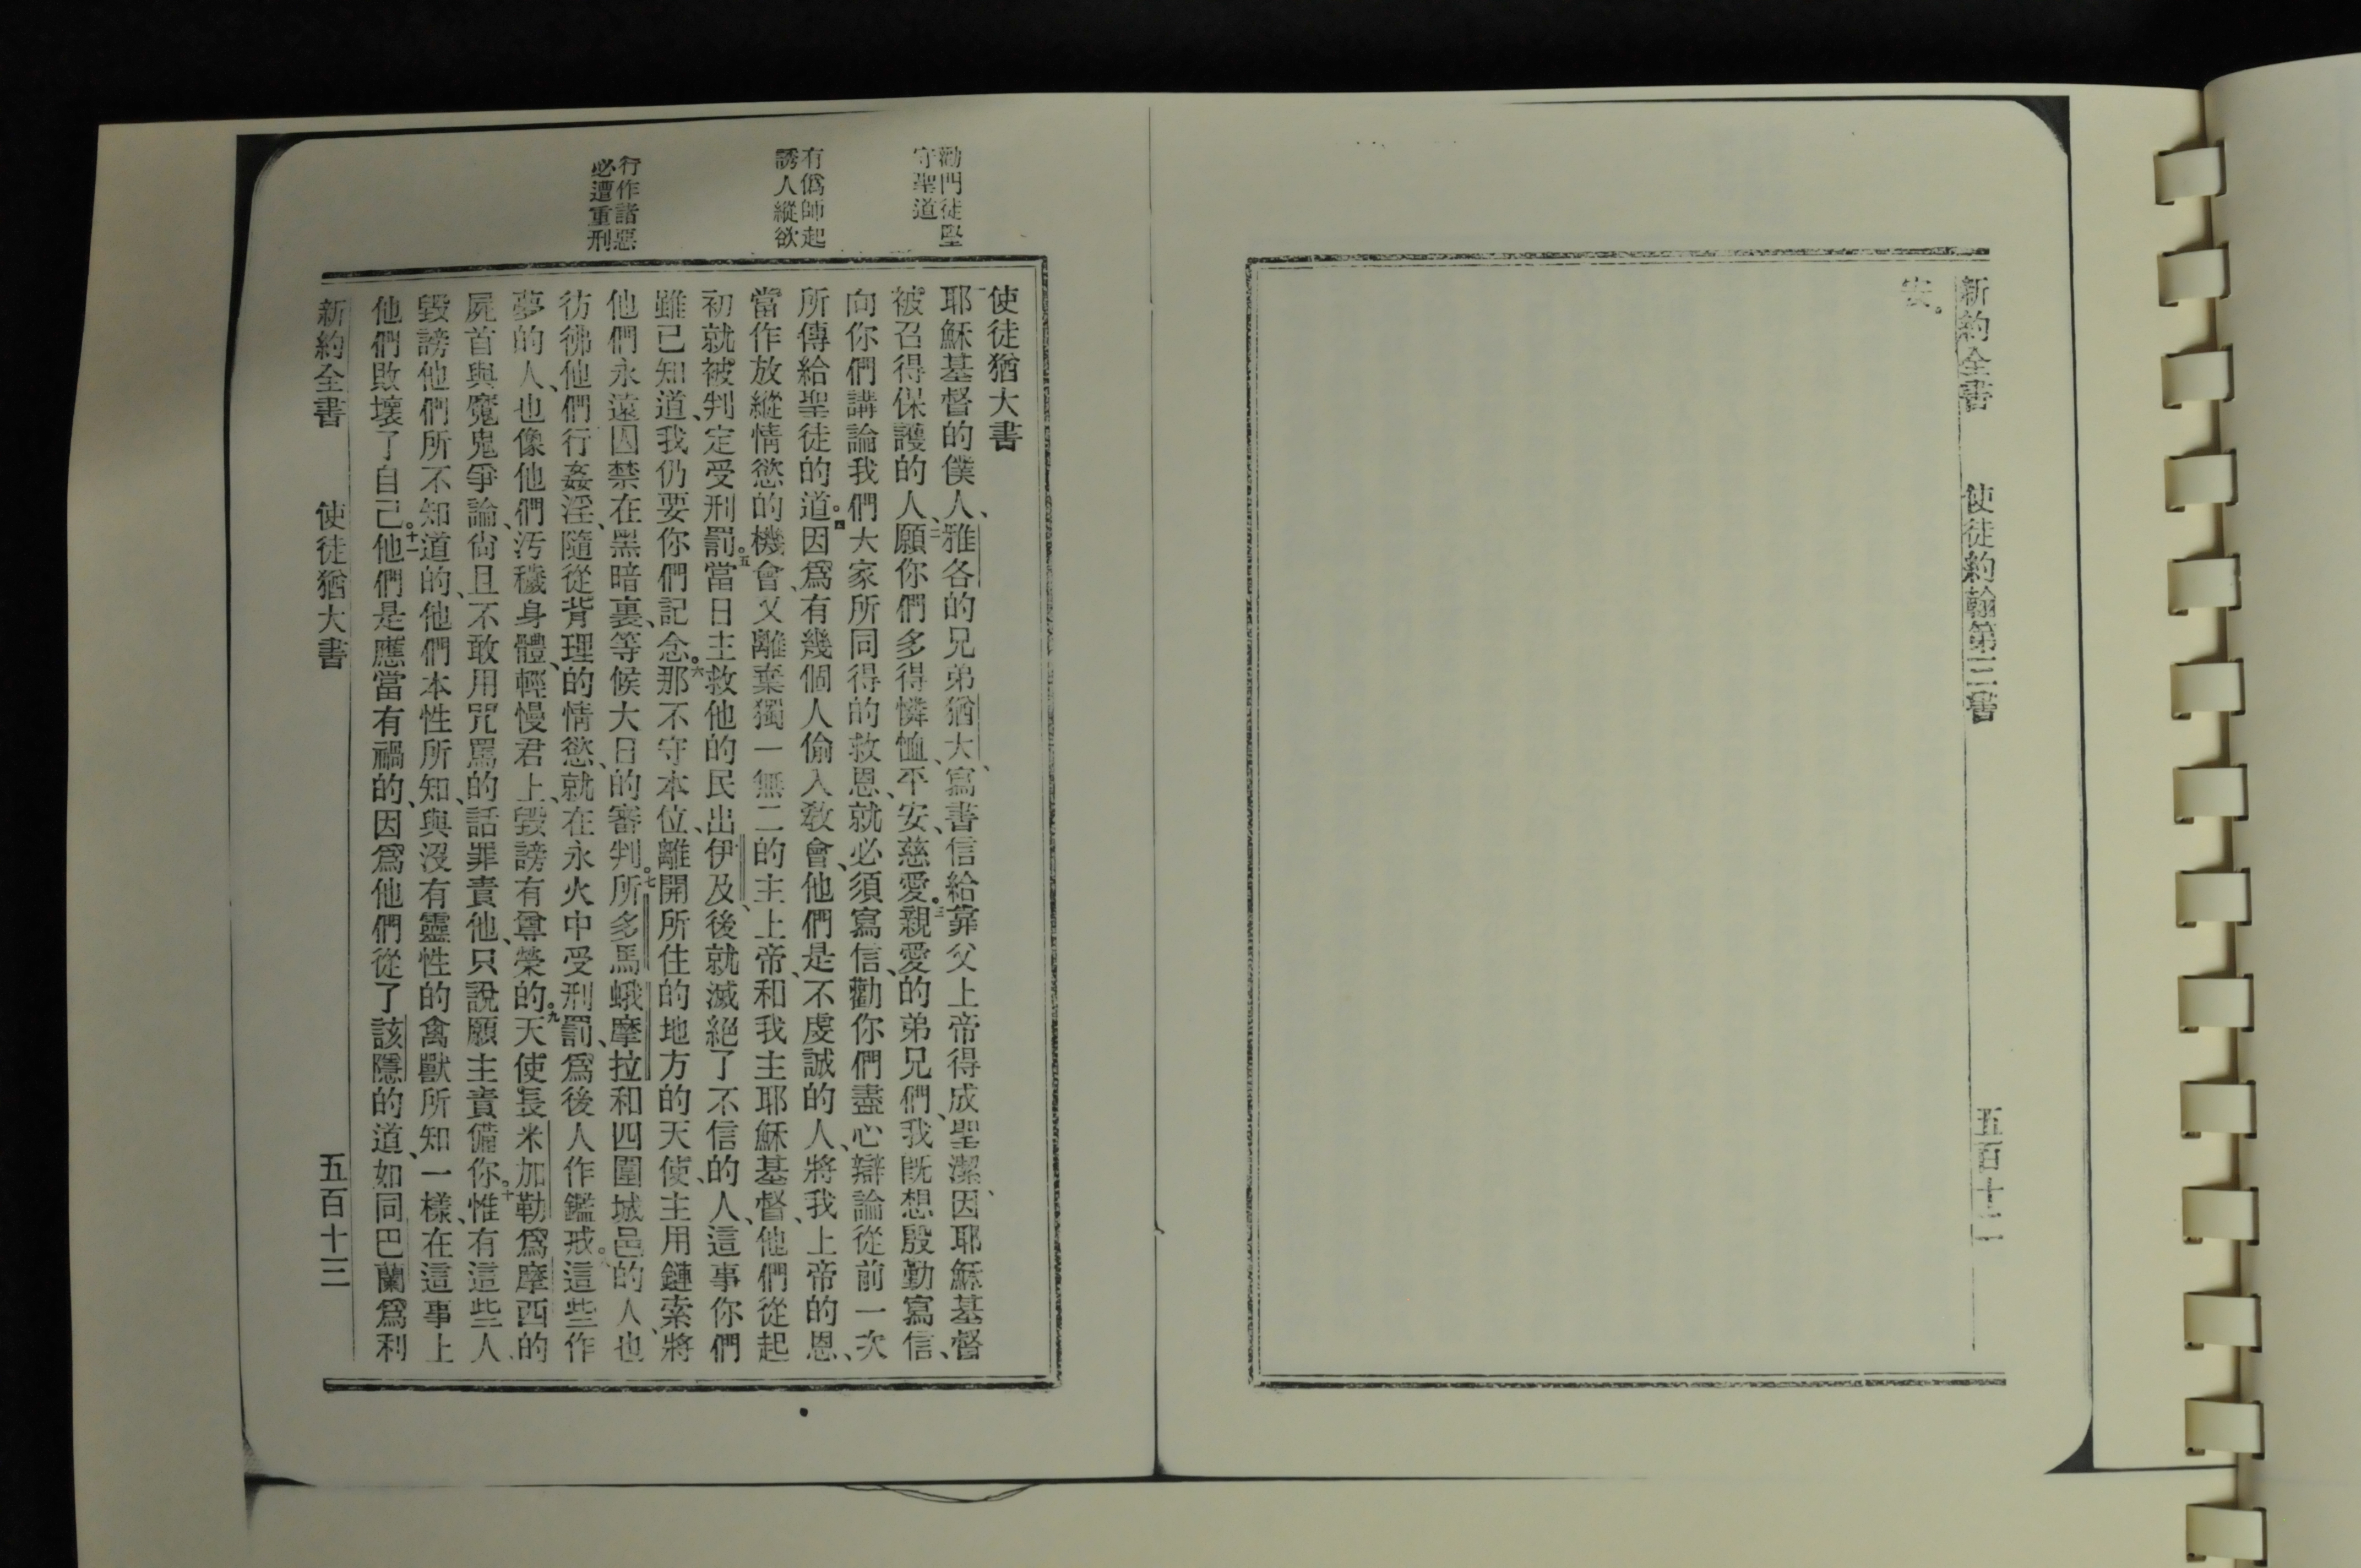 新約全書　使徒約翰第三書　五百十二
安。
勸門徒堅
守聖道
有僞師起
誘人縱欲
行作諸惡
必遭重刑
使徒猶大書
一耶穌基督的僕人、雅各的兄弟猶大、寫書信給靠父上帝得成聖潔、因耶穌基督
被召得保護的人、二願你們多得憐恤、平安、慈愛。三親愛的弟兄們、我既想殷勤寫信、
向你們講論我們大家所同得的救恩、就必須寫信、勸你們盡心辯論從前一次
所傳給聖徒的道。四因爲、有幾個人偷入敎會、他們是不虔誠的人、將我上帝的恩、
當作放縱情慾的機會、又離棄獨一無二的主上帝、和我主耶穌基督、他們從起
初就被判定受刑罰。五當日主救他的民出伊及、後就滅絕了不信的人、這事你們
雖已知道、我仍要你們記念。六那不守本位、離開所住的地方的天使、主用鏈索將
他們永遠囚禁在黑暗裏、等候大日的審判。七所多馬蛾摩拉和四圍城邑的人、也
彷彿他們行姦淫、隨從背理的情慾、就在永火中受刑罰、爲後人作鑑戒。八這些作
夢的人、也像他們汚穢身體、輕慢君上、毀謗有尊榮的。九天使長米加勒爲摩西的
屍首與魔鬼爭論、尙且不敢用咒駡的話罪責他、只說願主責備你。十惟有這些人、
毀謗他們所不知道的、他們本性所知、與沒有靈性的禽獸所知一樣、在這事上
他們敗壞了自己。十一他們是應當有禍的、因爲他們從了該隱的道、如同巴蘭爲利
新約全書　使徒猶大書　五百十三